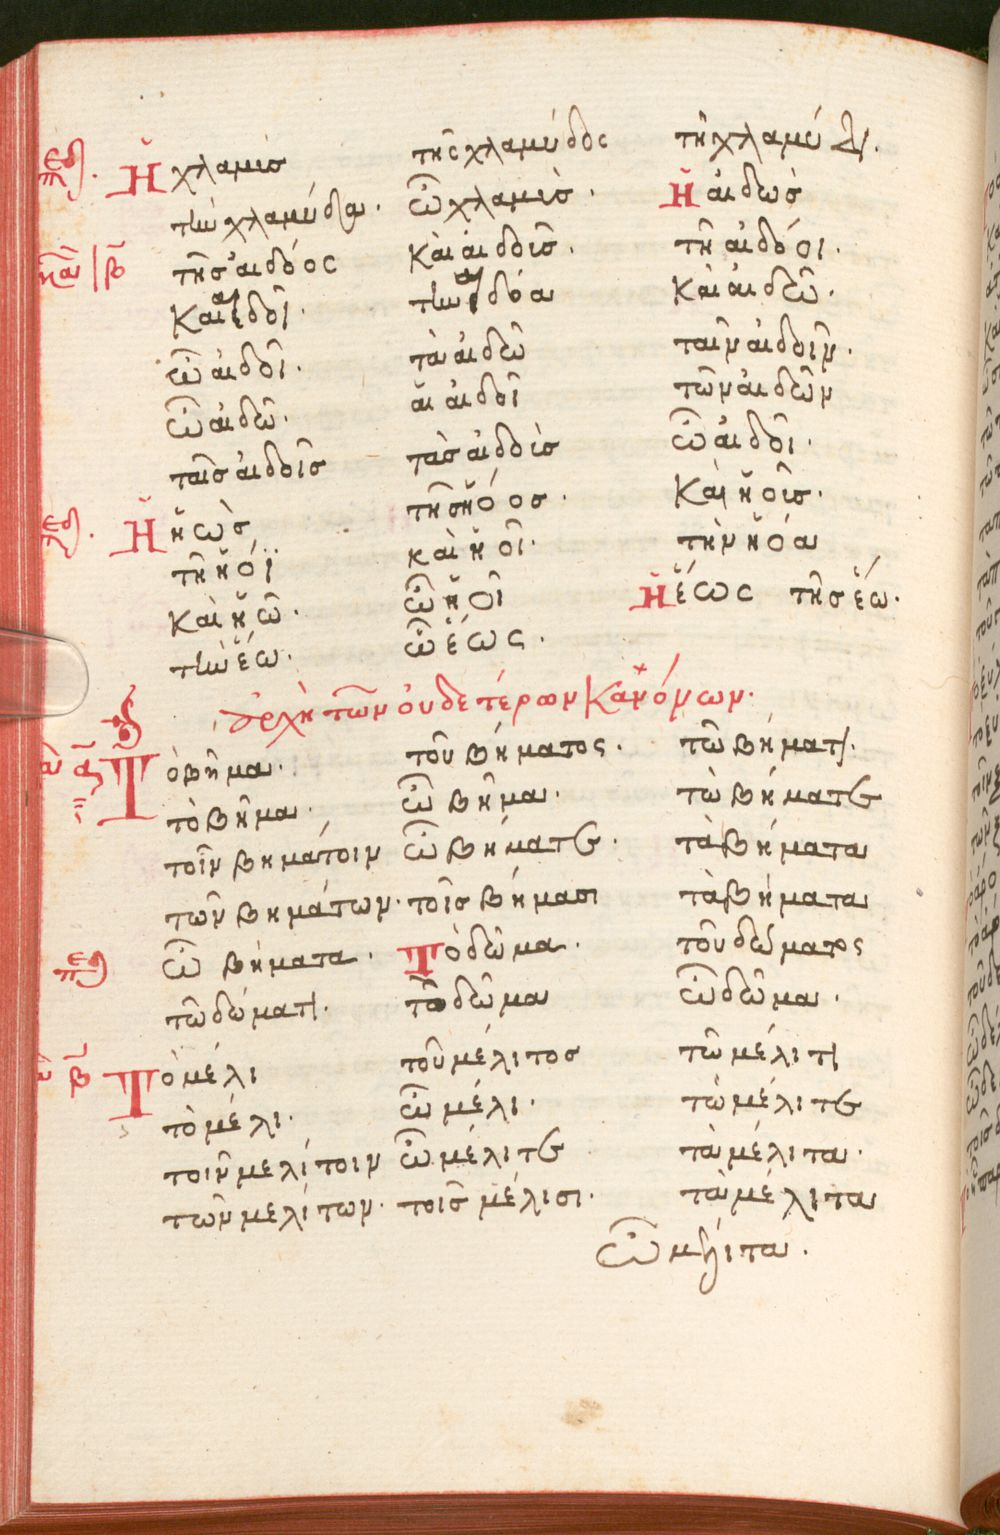 Ἡ χλαμὶσ τῆς χλαμύδος τῆ χλαμύδι.
τὴν χλαμύδα. ὦ χλαμὶσ. Ἡ αἰδὼσ
κ(αν)ὼ(ν) β τῆσ αἰδόος καὶ αἰδοῖσ. τῆ αἰδόϊ.
καὶ αἰδοῖ. τὴν αἰδόα καὶ αἰδῶ.
ὦ αἰδοῖ. τὰ αἰδῶ ταῖν αἰδοῖν.
ὦ αἰδῶ. αἱ αἰδοὶ τῶν αἰδῶν
ταῖσ αἰδοῖσ τὰσ αἰδοὺσ ὦ αἰδοῖ.
Ἡ ἠὼσ τῆσ ἠόοσ. καὶ ἠοῖσ.
τῆ ἠόϊ καὶ ἠοῖ. τὴν ἠόα
καὶ ἠῶ. ὦ ἠοῖ Ἡ ἕως τῆσ ἕω.
τὴν ἕω. ὦ ἕως.
ἀρχὴ τῶν οὐδετέρων κανόνων.
α Τὸ βῆμα. τοῦ βήματος. τῶ βήματι.
τὸ βῆμα. ὦ βῆμα. τὼ βήματε
τοῖν βημάτοιν ὦ βήματε. τὰ βήματα
τῶν βημάτων. τοῖσ βήμασι τὰ βήματα
ὦ βήματα. Τὸ δῶμα. τοῦ δώματος
τῶ δώματι. τὸ δῶμα ὦ δῶμα.
β Τὸ μέλι τοῦ μέλιτοσ τῶ μέλιτι
τὸ μέλι. ὦ μέλι. τὼ μέλιτε
τοῖν μελίτοιν ὦ μέλιτε τὰ μέλιτα.
τῶν μελίτων. τοῖσ μέλισι. τὰ μέλιτα
ὦ μέλιτα.